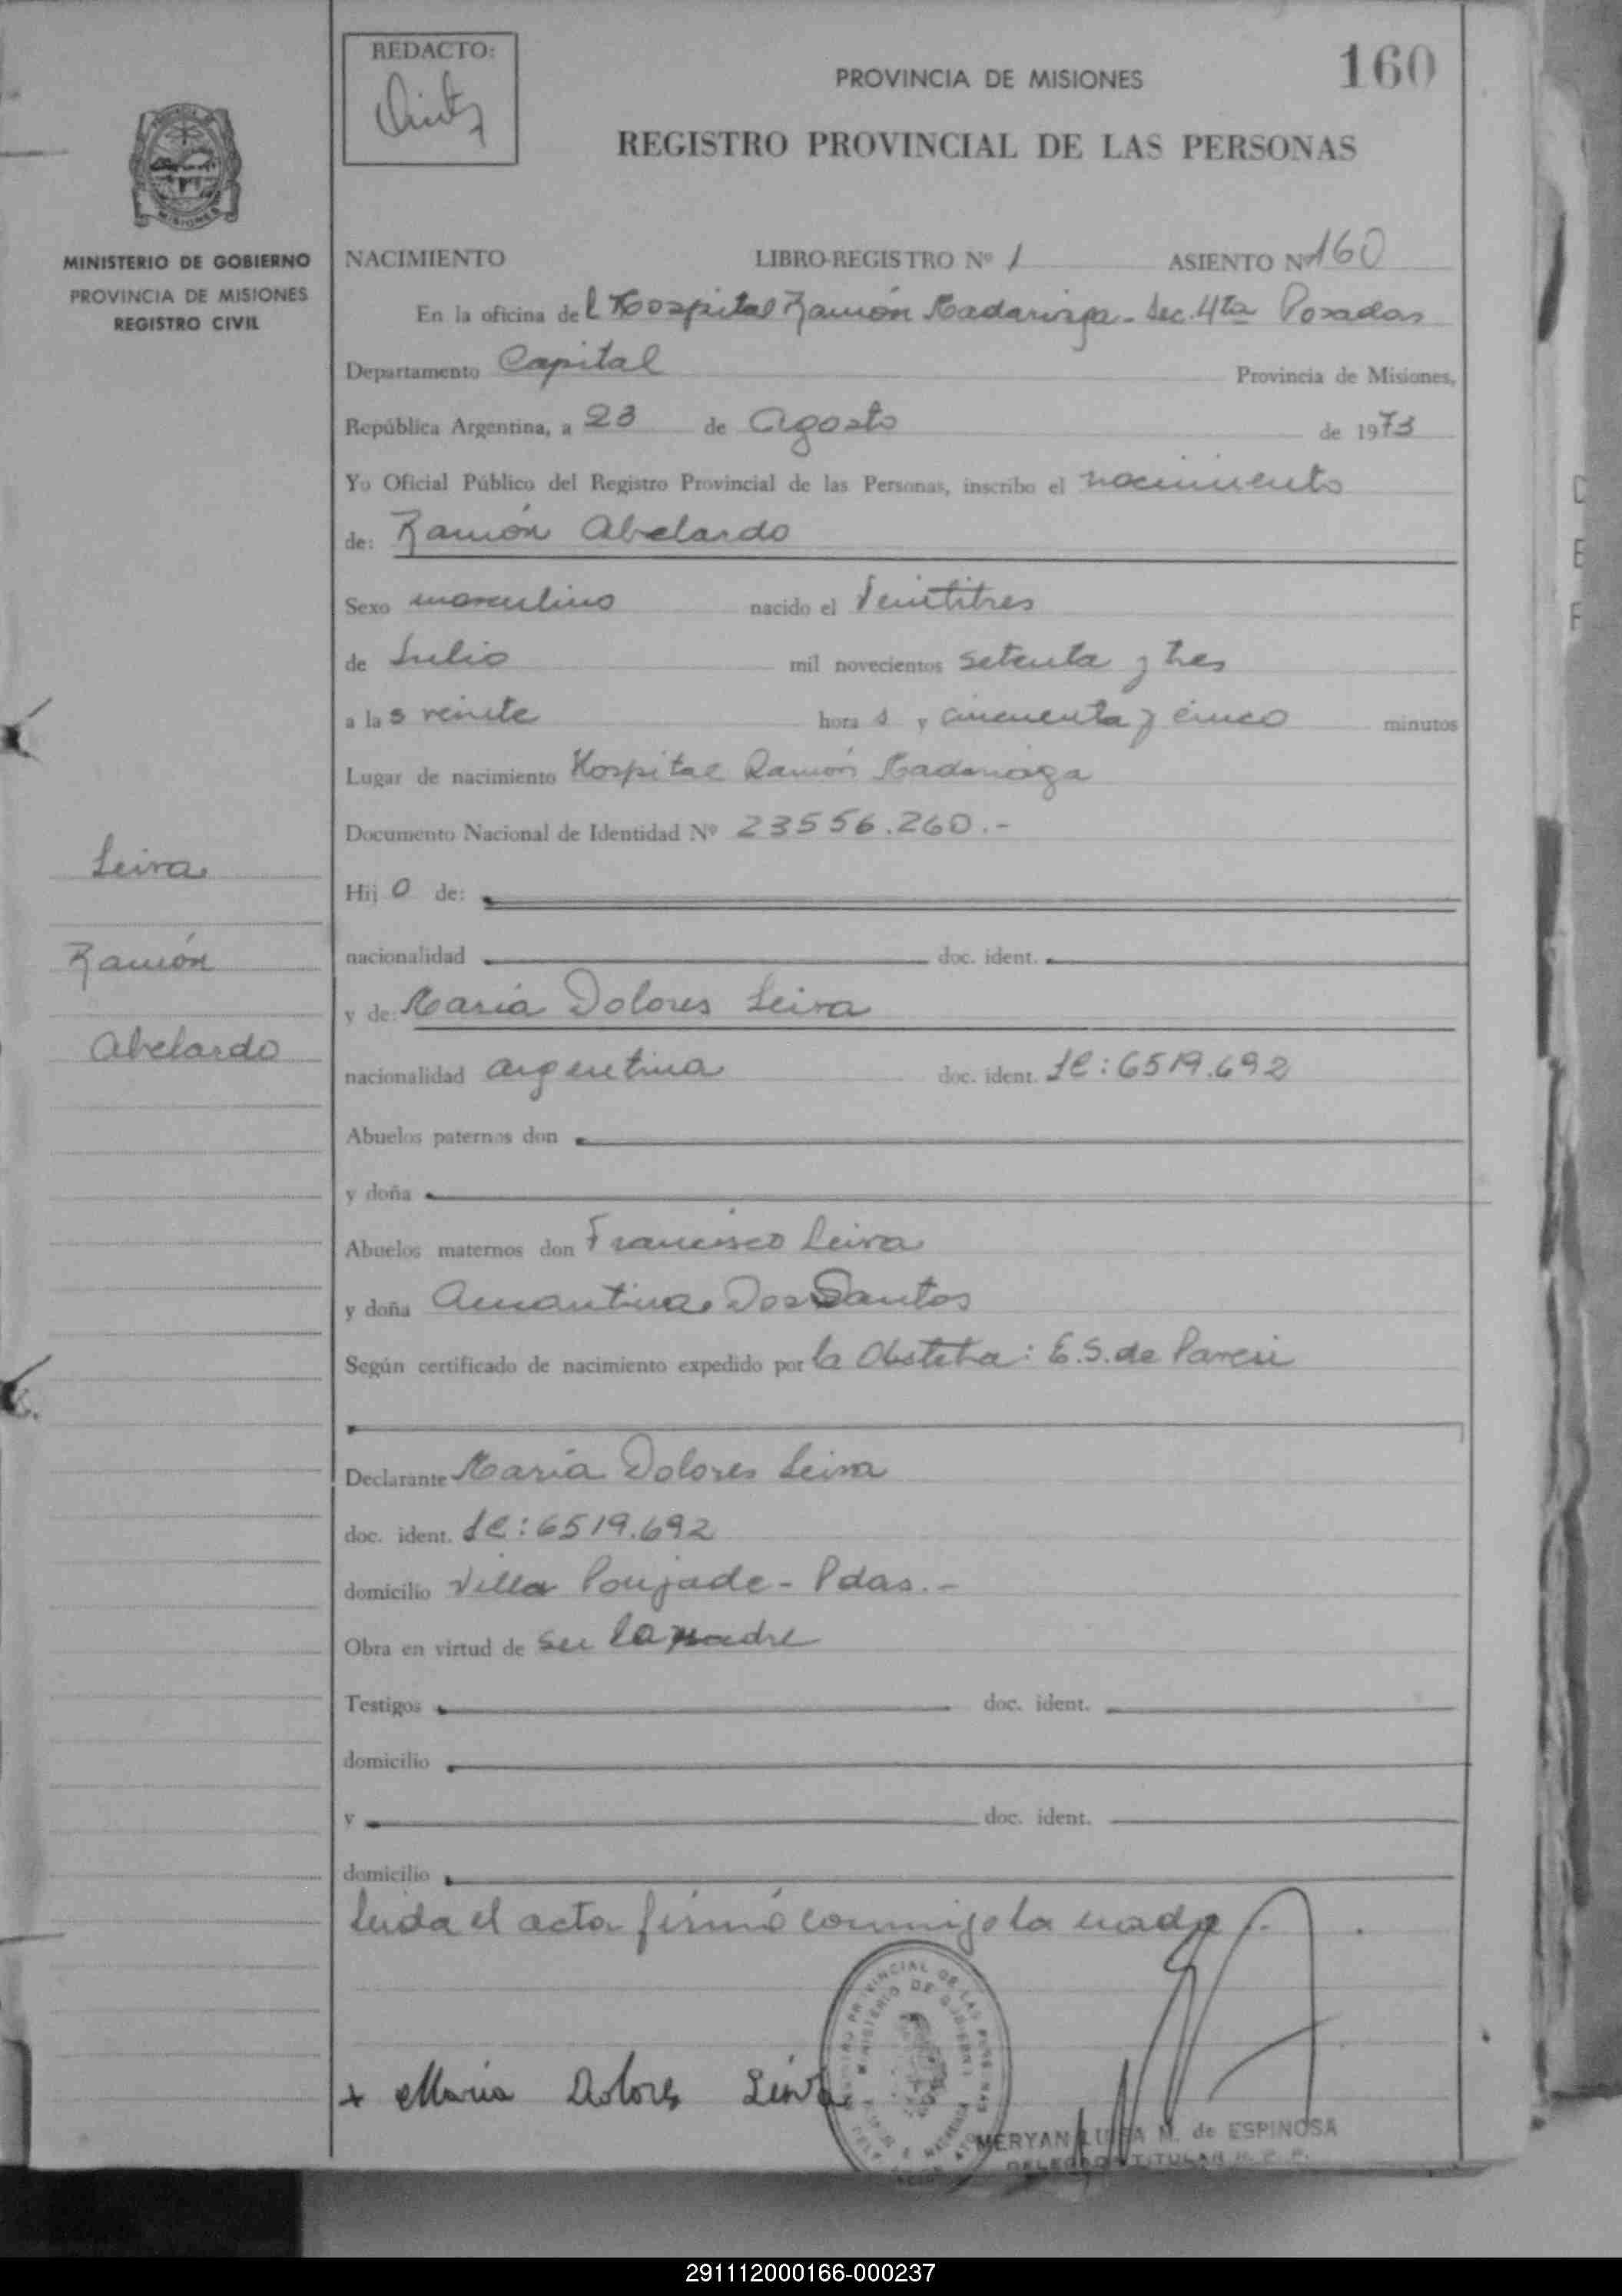 REDACTO:
160
PROVINCIA DE MISIONES
REGISTRO PROVINCIAL DE LAS PERSONAS
MISIONES
MINISTERIO DE GOBIERNO
PROVINCIA DE MISIONES
REGISTRO CIVIL
NACIMIENTO LIBRO-REGISTRO Nº 1 ASIENTO Nº 160
En la oficina del Hospital Ramón Madariaga - Sec. 4ta Posadas
Departamento Capital Provincia de Misiones,
República Argentina, a 23 de Agosto de 1973
Yo Oficial Público del Registro Provincial de las Personas, inscribo el nacimiento
de: Ramón Abelardo
Sexo masculino nacido el Veintitres
de Julio mil novecientos setenta y tres
a las veinte horas y cincuenta y cinco minutos
Lugar de nacimiento Hospital Ramón Madariaga
Documento Nacional de Identidad Nº 23556.260.-
Leiva
Ramón
Abelardo
Hijo de:
nacionalidad doc. ident.
y de: María Dolores Leiva
nacionalidad argentina doc. ident. LC: 6519.692
Abuelos paternos don
y doña
Abuelos maternos don Francisco Leiva
y doña Amantina Dos Santos
Según certificado de nacimiento expedido por la Obstetra: E.S. de
Declarante María Dolores Leiva
doc. ident. LC: 6519.692
domicilio Villa Poujade - Pdas.-
Obra en virtud de ser la madre
Testigos doc. ident.
domicilio
y doc. ident.
domicilio
Leida el acta firmó conmigo la madre.-
+ Maria Dolores Leiva
MERYAN LUISA M. de ESPINOSA
DELEGADA TITULAR R. P. P.
291112000166-000237